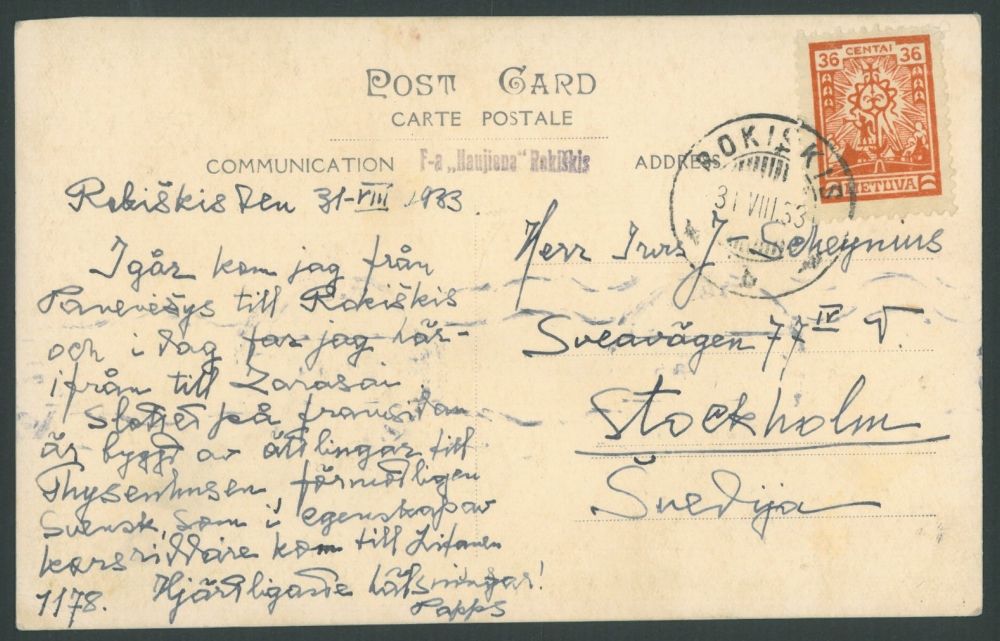 POST CARD
CARTE POSTALE
COMMUNICATION
F-a „Naujiena" Rokiškis
ADDRESS
36 CENTAI 36
LIETUVA
ROKIŠKIS
31 VIII 33
b
Rokiškis den 31-VIII 1933
Igår kom jag från
Panevėšys till Rokiškis
och i dag far jag här-
ifrån till Zarasai.
Slottet på framsidan
är byggt av ättlingar till
Thysenhusen, förmodligen
svensk, som i egenskap av
korsriddare kom till Litauen
1178. Hjärtligaste hälsningar!
Papps
Herr J. Scheynius
Sveavägen 77 IV
Stockholm
Švedija